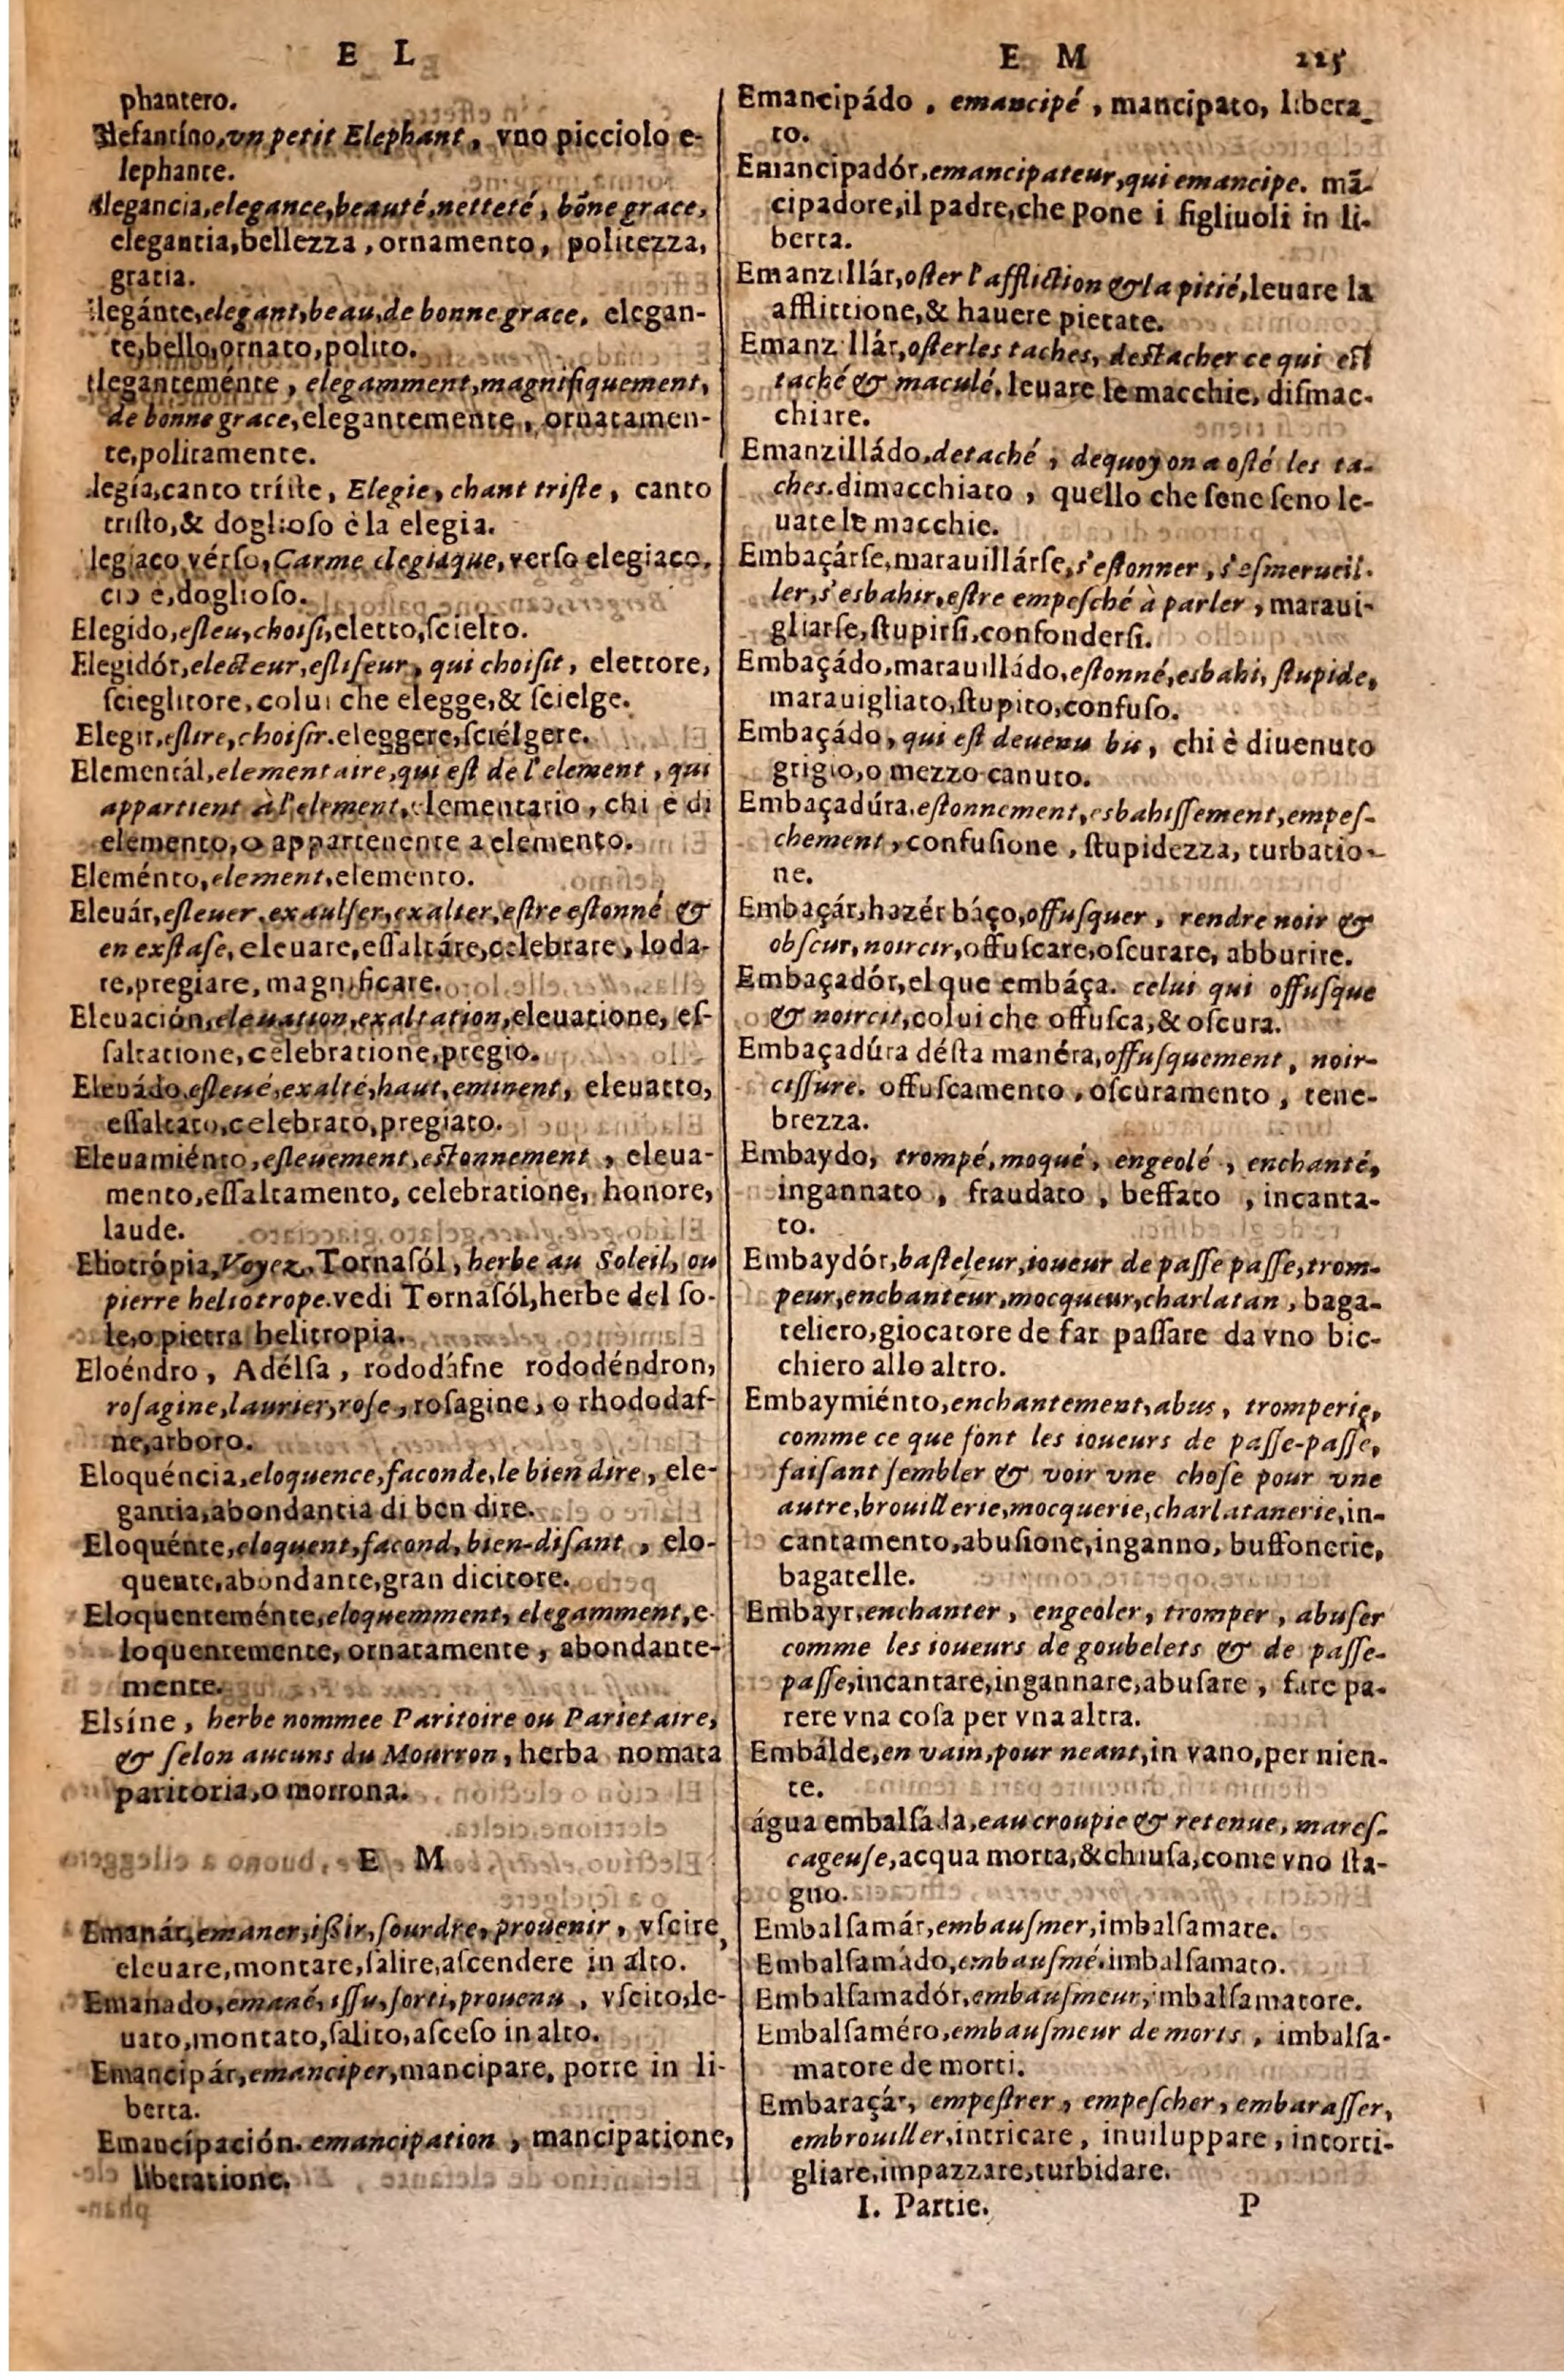 E L
phantero.
Elefantíno, vn petit Elephant, vno picciolo e-
lephante.
Elegancia, elegance, beauté, netteté, bõne grace,
elegantia, bellezza, ornamento, politezza,
gratia.
Elegánte, elegant, beau, de bonne grace, elegan-
te, bello, ornato, polito.
Eleganteménte, elegamment, magnifiquement,
de bonne grace, elegantemente, ornatamen-
te, politamente.
Elegía, canto tríste, Elegie, chant triste, canto
tristo, & doglioso è la elegia.
Elegíaco vérso, Carme elegiaque, verso elegiaco,
cio è, doglioso.
Elegido, esleu, choisi, eletto, scielto.
Elegidór, electeur, esliseur, qui choisit, elettore,
scieglitore, colui che elegge, & scielge.
Elegir, eslire, choisir. eleggere, sciélgere.
Elementál, elementaire, qui est de l'element, qui
appartient à l'element, elementario, chi e di
elemento, o appartenente a elemento.
Eleménto, element, elemento.
Eleuár, esleuer, exaulser, exalter, estre estonné &
en exstase, eleuare, essaltáre, celebrare, loda-
re, pregiare, magnificare.
Eleuación, eleuation, exaltation, eleuatione, es-
saltatione, celebratione, pregio.
Eleuádo, esleué, exalté, haut, eminent, eleuatto,
essaltato, celebrato, pregiato.
Eleuamiénto, esleuement, estonnement, eleua-
mento, essaltamento, celebratione, honore,
laude.
Eliotrópia, Voyez, Tornasól, herbe au Soleil, ou
pierre heliotrope. vedi Tornasól, herbe del so-
le, o pietra helitropia.
Eloéndro, Adélsa, rododáfne rododéndron,
rosagine, laurier, rose, rosagine, o rhododaf-
ne, arboro.
Eloquéncia, eloquence, faconde, le bien dire, ele-
gantia, abondantia di ben dire.
Eloquénte, eloquent, facond, bien-disant, elo-
quente, abondante, gran dicitore.
Eloquenteménte, eloquemment, elegamment, e-
loquentemente, ornatamente, abondante-
mente.
Elsíne, herbe nommee Paritoire ou Parietaire,
& selon aucuns du Mourron, herba nomata
paritoria, o morrona.
E M
Emanár, emaner, issir, sourdre, prouenir, vscire,
eleuare, montare, salire, ascendere in alto.
Emanado, emané, issu, sorti, prouenu, vscito, le-
uato, montato, salito, asceso in alto.
Emancipár, emanciper, mancipare, porre in li-
berta.
Emancipación. emancipation, mancipatione,
liberatione.
E M 225
Emancipádo, emancipé, mancipato, libera-
to.
Emancipadór, emancipateur, qui emancipe. mã-
cipadore, il padre, che pone i figliuoli in li-
berta.
Emanzillár, oster l'affliction & la pitié, leuare la
afflittione, & hauere pietate.
Emanzillár, oster les taches, destacher ce qui est
taché & maculé, leuare le macchie, dismac-
chiare.
Emanzilládo, detaché, dequoy on a osté les ta-
ches. dimacchiato, quello che sene seno le-
uate le macchie.
Embaçárse, marauillárse, s'estonner, s'esmerueil-
ler, s'esbahir, estre empesché à parler, maraui-
gliarse, stupirsi, confondersi.
Embaçádo, marauilládo, estonné, esbahi, stupide,
marauigliato, stupito, confuso.
Embaçádo, qui est deuenu bu, chi è diuenuto
grigio, o mezzo canuto.
Embaçadúra. estonnement, esbahissement, empes-
chement, confusione, stupidezza, turbatio-
ne.
Embaçár, hazér báço, offusquer, rendre noir &
obscur, noircir, offuscare, oscurare, abburire.
Embaçadór, el que embáça. celui qui offusque
& noircit, colui che offusca, & oscura.
Embaçadúra désta manéra, offusquement, noir-
cissure. offuscamento, oscuramento, tene-
brezza.
Embaydo, trompé, moqué, engeolé, enchanté,
ingannato, fraudato, beffato, incanta-
to.
Embaydór, basteleur, ioueur de passe passe, trom-
peur, enchanteur, mocqueur, charlatan, baga-
teliero, giocatore de far passare da vno bic-
chiero allo altro.
Embaymiénto, enchantement, abus, tromperie,
comme ce que font les ioueurs de passe-passe,
faisant sembler & voir vne chose pour vne
autre, brouillerie, mocquerie, charlatanerie, in-
cantamento, abusione, inganno, buffonerie,
bagatelle.
Embayr, enchanter, engeoler, tromper, abuser
comme les ioueurs de goubelets & de passe-
passe, incantare, ingannare, abusare, fare pa-
rere vna cosa per vna altra.
Embálde, en vain, pour neant, in vano, per nien-
te.
água embalsáda, eau croupie & retenue, mares-
cageuse, acqua morta, & chiusa, come vno sta-
gno.
Embalsamár, embausmer, imbalsamare.
Embalsamádo, embausmé. imbalsamato.
Embalsamadór, embausmeur, imbalsamatore.
Embalsaméro, embausmeur de morts, imbalsa-
matore de morti.
Embaraçár, empestrer, empescher, embarasser,
embrouiller, intricare, inuiluppare, intorti-
gliare, impazzare, turbidare.
I. Partie. P